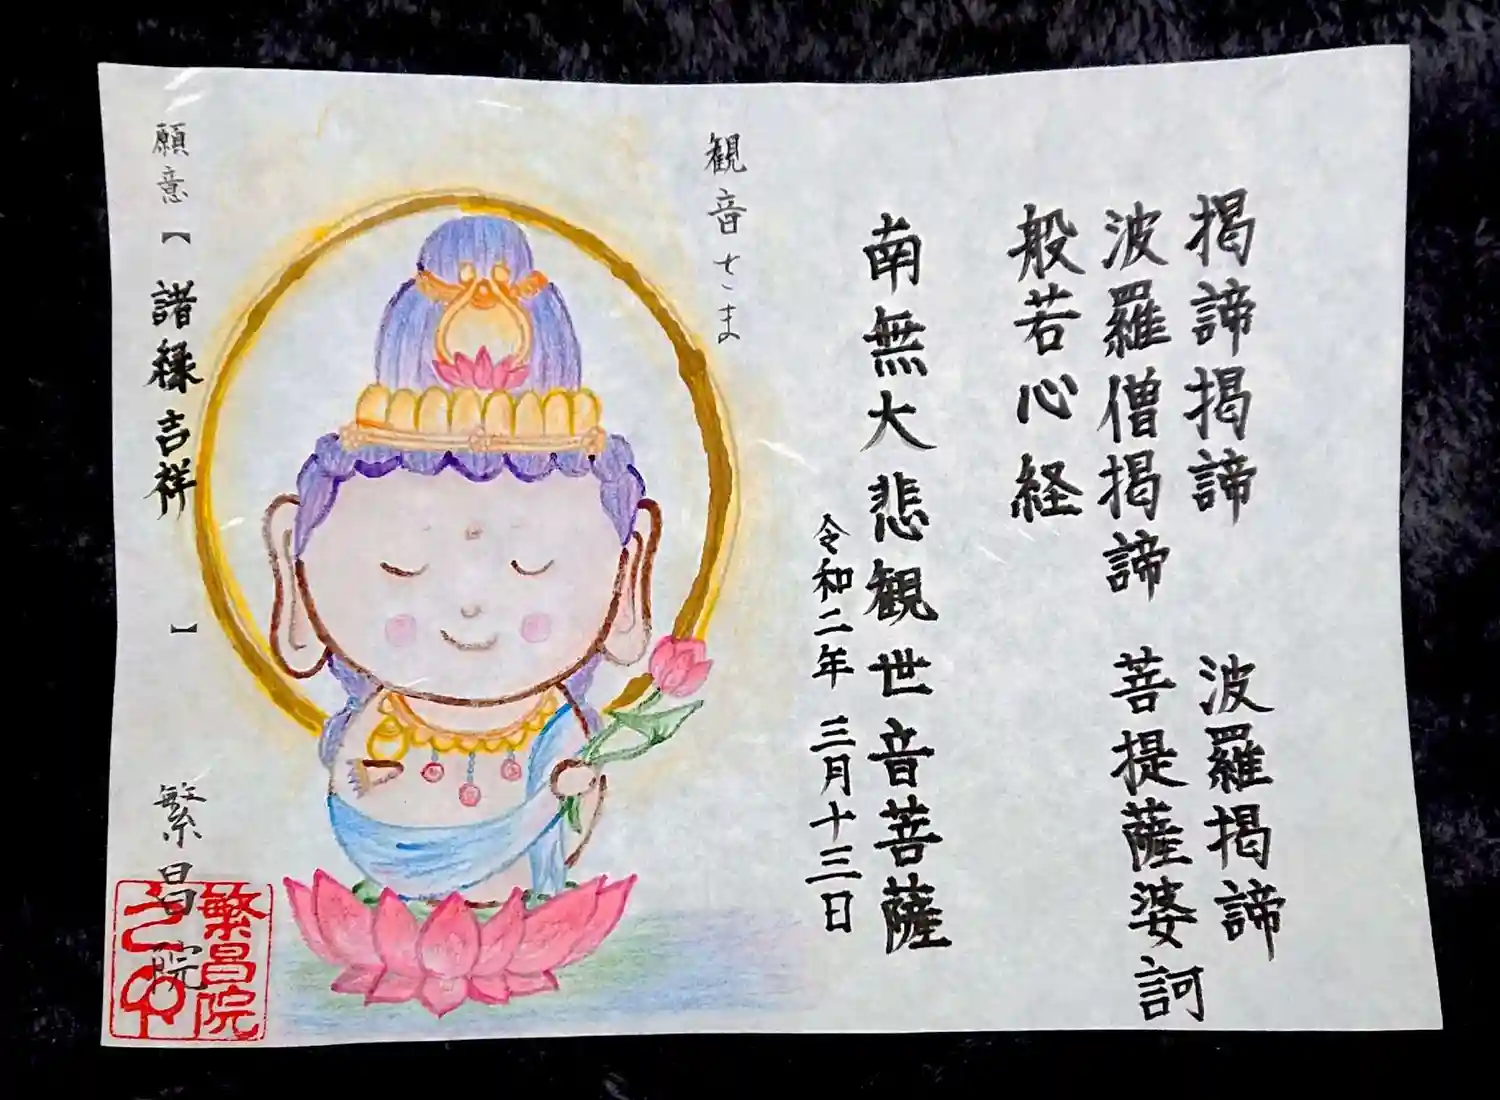 揭諦揭諦　波羅揭諦
波羅僧揭諦　菩提薩婆訶
般若心経
南無大悲観世音菩薩
令和二年 三月十三日
観音さま
願意【 諸縁吉祥 】
繁昌院
繁昌院